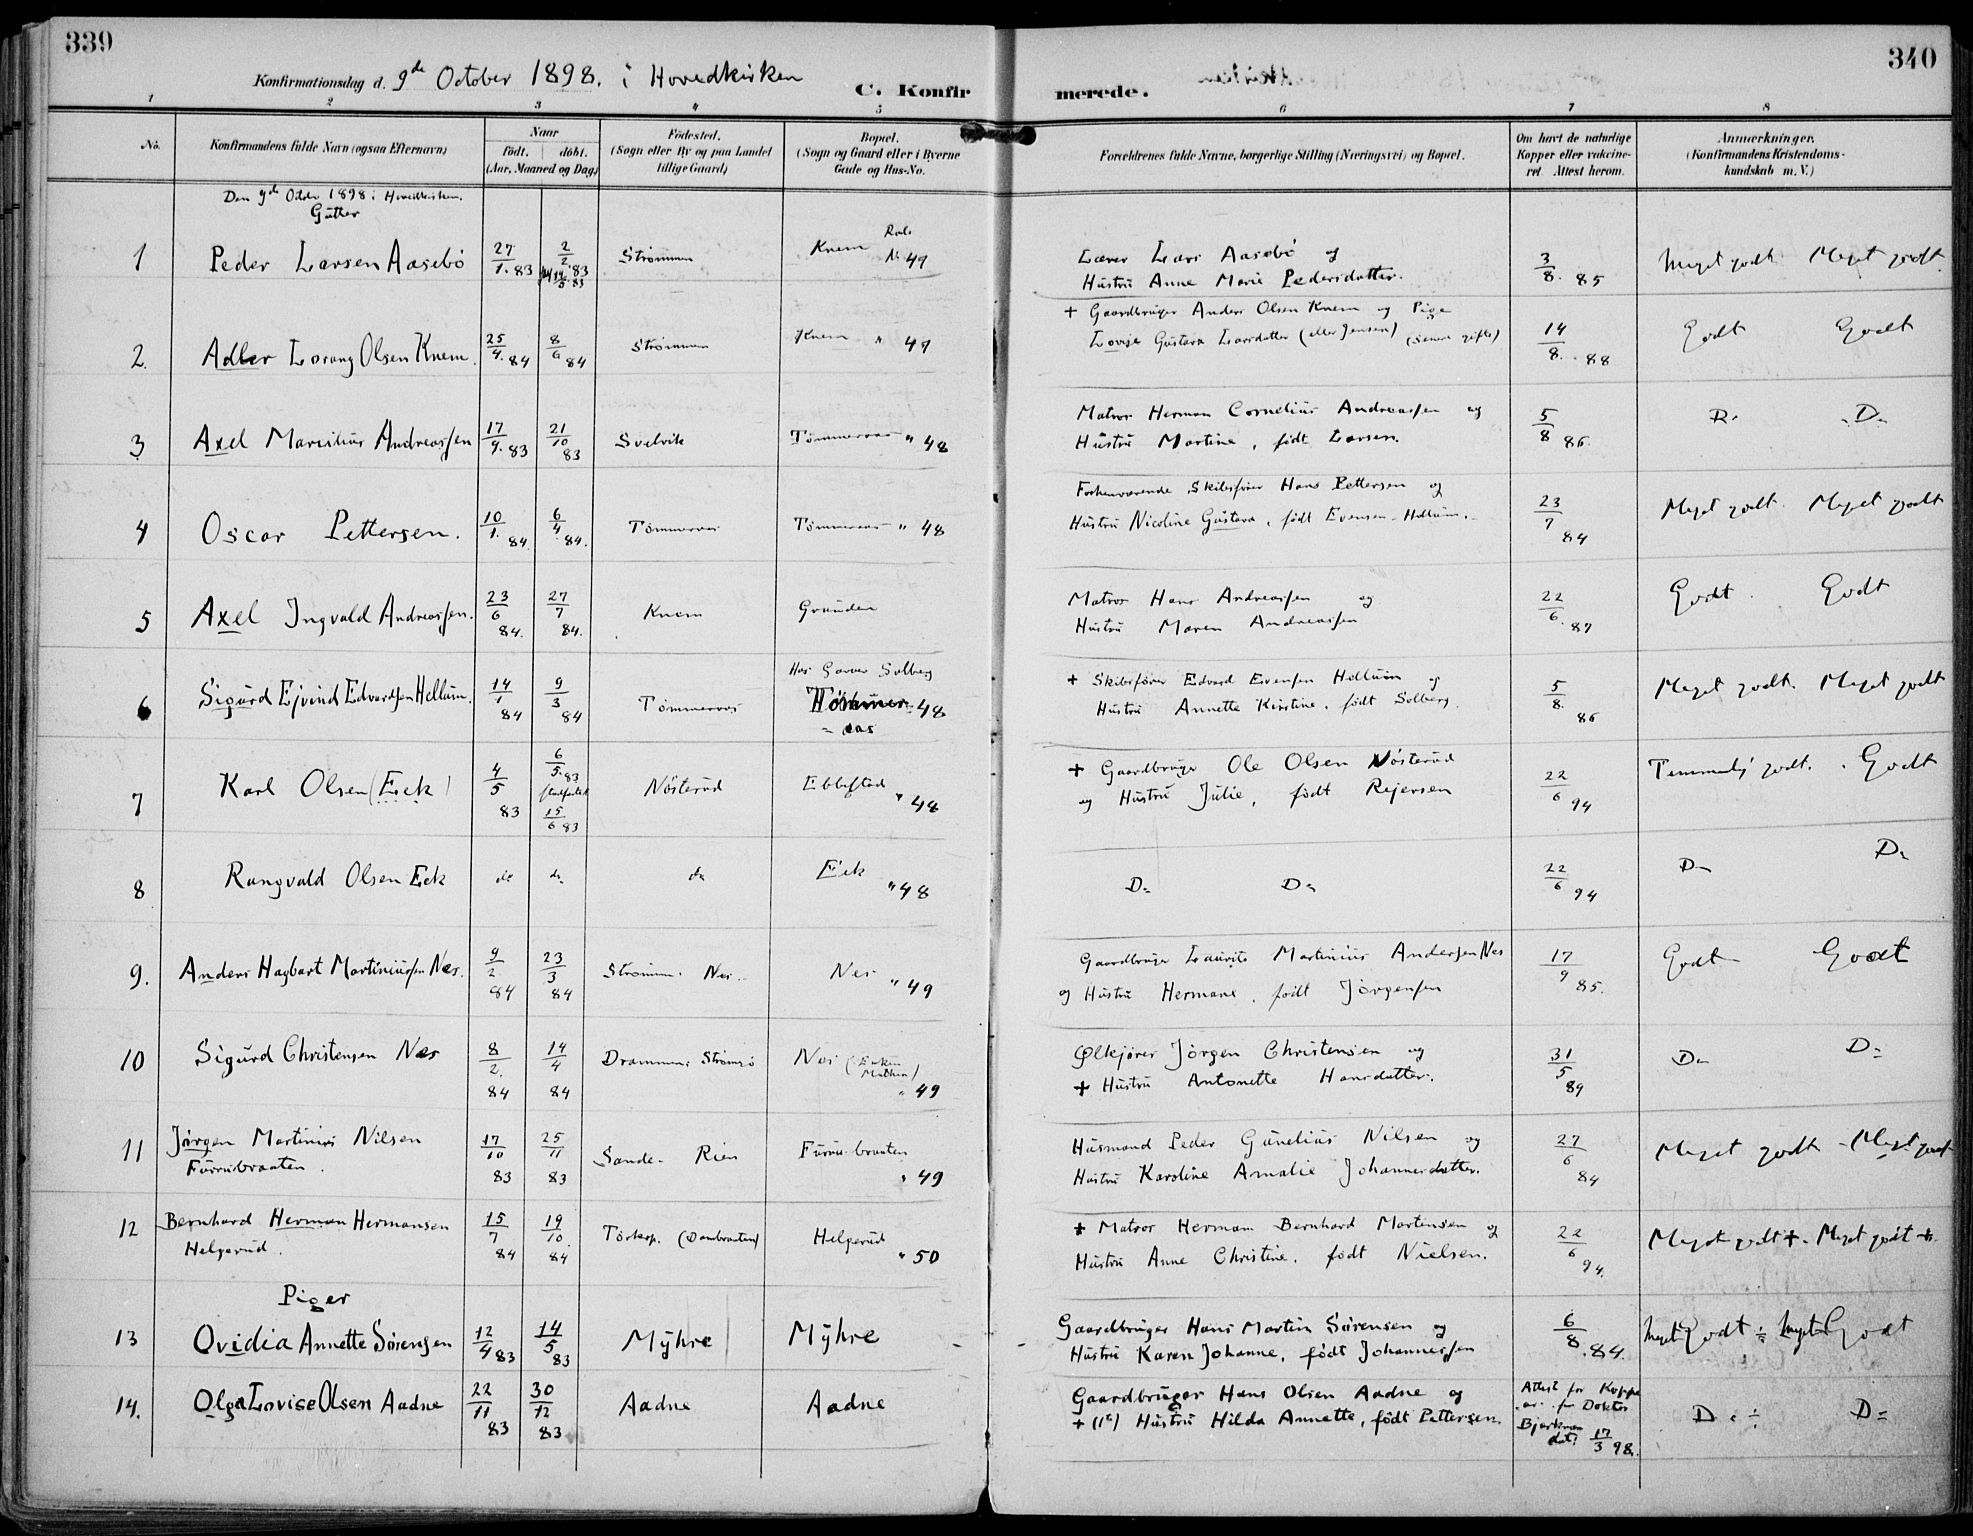 339
340
Konfirmationsdag d. 9de October 1898. i Hovedkirken
C. Konfirmerede.
1 2 3 4 5 6 7 8
No.
Konfirmandens fulde Navn (ogsaa Efternavn)
Naar
født. døbt.
(Aar, Maaned og Dag)
Fødested.
(Sogn eller By og paa Landet
tillige Gaard)
Bopæl.
(Sogn og Gaard eller i Byerne
Gade og Hus-No.
Forældrenes fulde Navne, borgerlige Stilling (Næringsvei) og Bopæl.
Om havt de naturlige
Kopper eller vakcine-
ret Attest herom.
Anmærkninger.
(Konfirmandens Kristendoms-
kundskab m. V.)
Den 9de Octbr 1898 i Hovedkirken.
Gutter
1 Peder Larsen Aasebö 27/1. 83 2/2. 83 Strömmen Knem No 49
Lærer Lars Aasebö og
Hustru Anne Marie Pedersdatter. 3/8. 85 Meget godt Meget godt.
2. Adler Lorang Olsen Knem. 25/4. 84 8/6 84 Strömmen Knem " 49
+ Gaardbruger Anders Olsen Knem og Pige
Lovise Gustava Larsdatter (eller Jensen) (senere gifte) 14/8. 88 Godt Godt
3 Axel Marcilius Andreassen 17/9. 83 21/10 83 Svelvik Tömmeraas " 48
Matros Herman Cornelius Andreassen og
Hustru Martine, født Larsen. 5/8 86. D. D.
4 Oscar Pettersen. 10/1. 84 6/4 84. Tömmeraas Tömmeraas " 48
Forhenværende Skibsfører Hans Pettersen og
Hustru Nicoline Gustava, født Evensen-Hellum. 23/7 84 Meget godt. Meget godt
5 Axel Ingvald Andreassen. 23/6 84. 27/7 84. Knem Grunden
Matros Hans Andreassen og
Hustru Maren Andreassen 22/6. 87 Godt. Godt
6 Sigurd Ejvind Edvardsen Hellum. 14/1 84 9/3 84 Tömmeraas
Hos Garver Solberg
Tömmer- 48
= aas
+ Skibsfører Edvard Evensen Hellum og
Hustru Annette Kirstine, født Solberg. 5/8. 86 Meget godt. Meget godt
7 Karl Olsen (Eek) 4/5 83 6/5. 83 15/6 83 Nösterud Ebbestad " 48
+ Gaardbruger Ole Olsen Nösterud
og Hustru Julie, født Rejersen 22/6 94 Temmelig godt. Godt
8 Rangvald Olsen Eek do do do Eek " 48
D= D= 22/6 94 D= D=
9. Anders Hagbart Martiniussen Nes. 9/2 84 23/3 84 Strömm. Nes. Nes " 49
Gaardbruger Laurits Martinius Andersen Nes
og Hustru Hermane, født Jörgensen 17/9 85. Godt Godt
10 Sigurd Christensen Nes 8/2. 84 14/4 84 Drammen: Strömsö Nes " 49
Ølkjører Jörgen Christensen og
+ Hustru Antonette Hansdatter. 31/5 89 D= D=
11 Jörgen Martinius Nilsen
Furrubraaten. 17/10 83 25/11 83 Sande- Rien Furrubraaten " 49
Husmand Peder Gunelius Nilsen og
Hustru Karoline Amalie Johannesdatter. 27/6 84 Meget godt - Meget godt
12 Bernhard Herman Hermansen
Helgerud. 15/7 84 19/10 84 Törkop. (Dambraaten) Helgerud " 50
+ Matros Hermann Bernhard Martensen og
Hustru Anne Christine, født Nielsen. 22/6 94. Meget godt +. Meget godt +.
Piger
13 Ovidia Annette Sörensen 12/4 83 14/5 83 Mÿhre Mÿhre
Gaardbruger Hans Martin Sörensen og
Hustru Karen Johanne, født Johannessen 6/8. 84. Meget Godt ÷ Meget Godt
14. Olga Lovise Olsen Aadne 22/11 83 30/12 83 Aadne Aadne
Gaardbruger Hans Olsen Aadne og
+ (1ste) Hustru Hilda Annette, født Pettersen.
Attest for Koppe
fra Doktor
dat. 17/3 98. D. ÷ D=